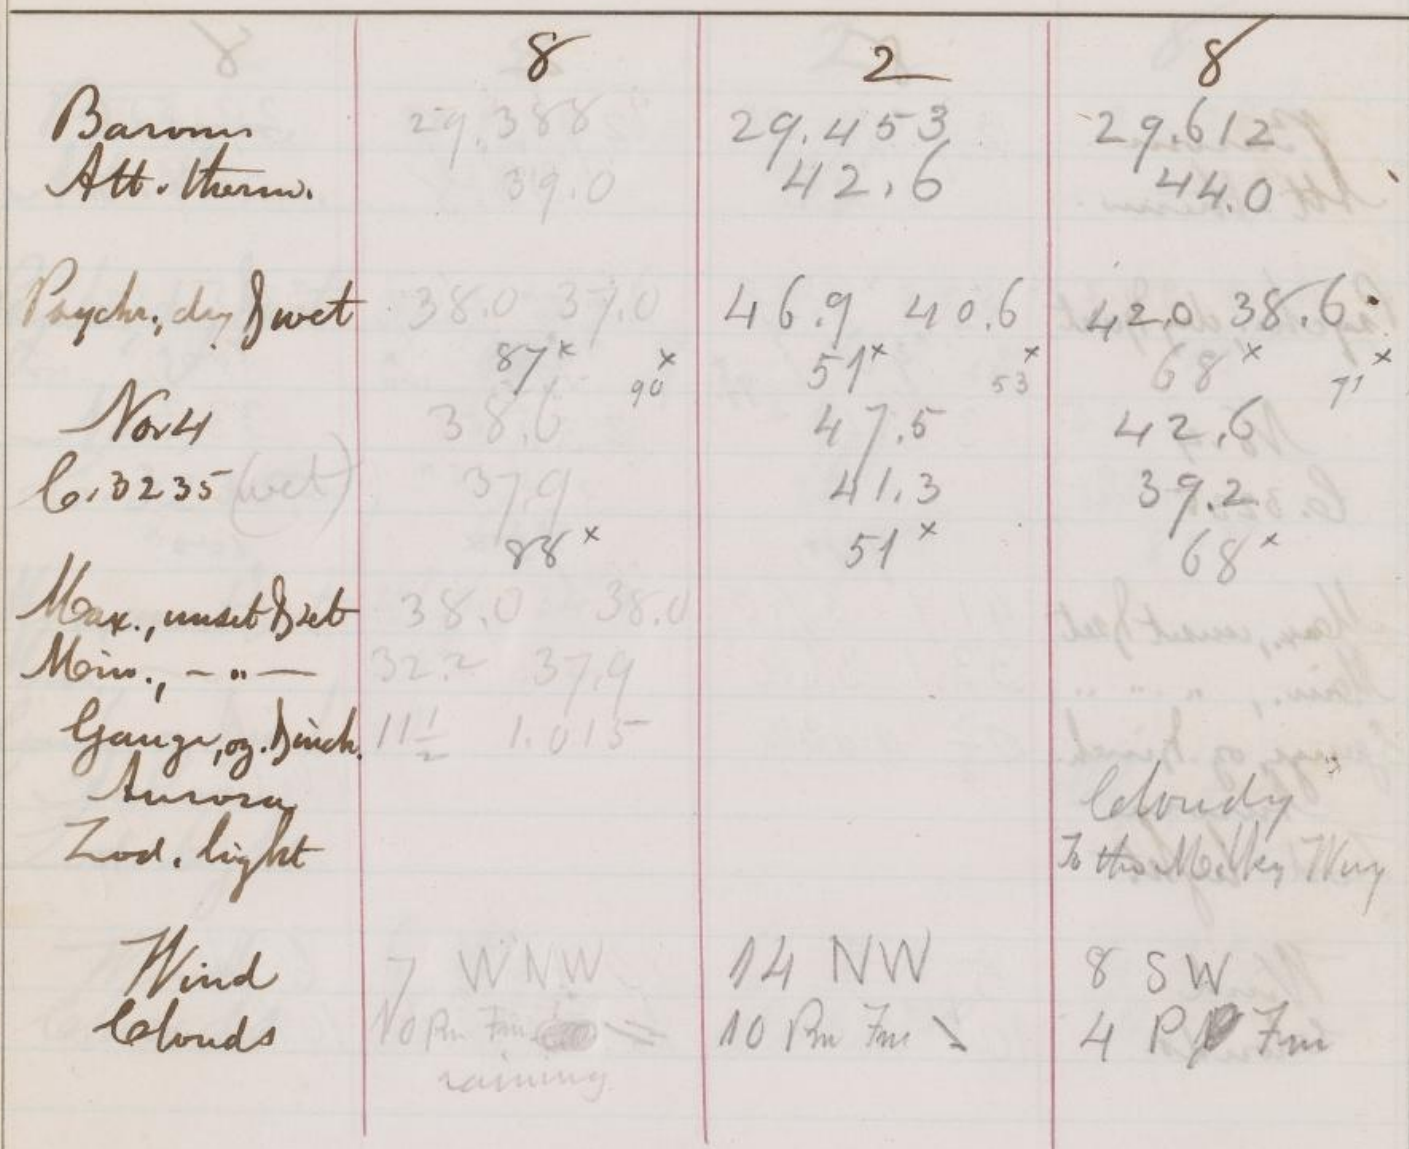 8 2 8
Barom 29.388 29.453 29.612
Att. therm. 39.0 42.6 44.0
Psychr., dry & wet 38.0 37.0 46.9 40.6 42.0 38.6
87× 90× 51× 53× 68× 71×
No. 4 38.6 47.5 42.6
C. 3235 (wet) 37.9 41.3 39.2
88× 51× 68×
Max., unset & set 38.0 38.0
Min., – " – 32.2 37.9
Gauge, oz. & inch. 11 1/2 1.015
Aurora Cloudy
Zod. light To the Milky Way
Wind 7 WNW 14 NW 8 SW
Clouds 10 Rn Fm 10 Rn Fm \ 4 P Fm
raining